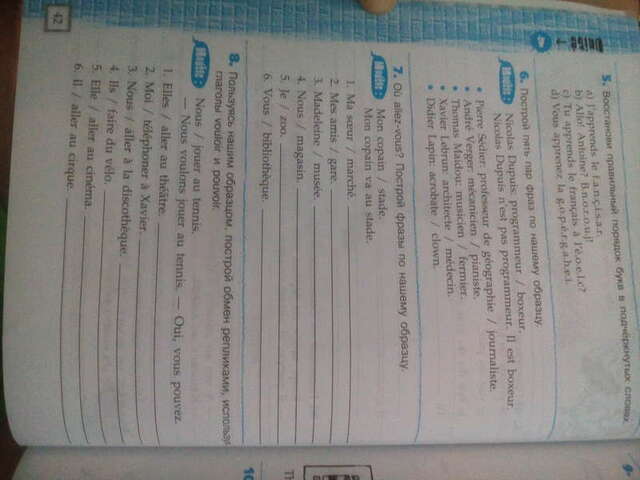 Unité
5. Восстанови правильный порядок букв в подчеркнутых словах.
b) Allô! Antoine? B.n.o.r.o.u.j!
c) Tu apprends le français à
d) Vous apprenez la g.o.p.é.r.g.a.h.e.i.
6. Построй пять пар фраз по нашему образцу.
Modèle:
Nicolas Dupuis: programmeur / boxeur.
Nicolas Dupuis n'est pas programmeur. Il est boxeur.
• Pierre Sédier: professeur de géographie / journaliste.
• André Verger: mécanicien / pianiste.
• Thomas musicien / fermier.
• Xavier Lebrun: architecte / médecin.
• Didier Lapin: acrobate / clown.
7. Où allez-vous? Построй фразы по нашему образцу.
Modèle:
Mon copain / stade.
Mon copain va au stade.
1. Ma sœur / marché.
2. Mes amis / gare.
3. Madeleine / musée.
4. Nous / magasin.
5. Je / zoo.
6. Vous / bibliothèque.
8. Пользуясь нашим образцом, построй обмен репликами, используя
глаголы vouloir и pouvoir.
Modèle:
Nous / jouer au tennis.
— Nous voulons jouer au tennis. — Oui, vous pouvez.
1. Elles / aller au théâtre.
2. Moi / téléphoner à Xavier.
3. Nous / aller à la discothèque.
4. Ils / faire du vélo.
5. Elle / aller au cinéma.
6. Il / aller au cirque.
42
10